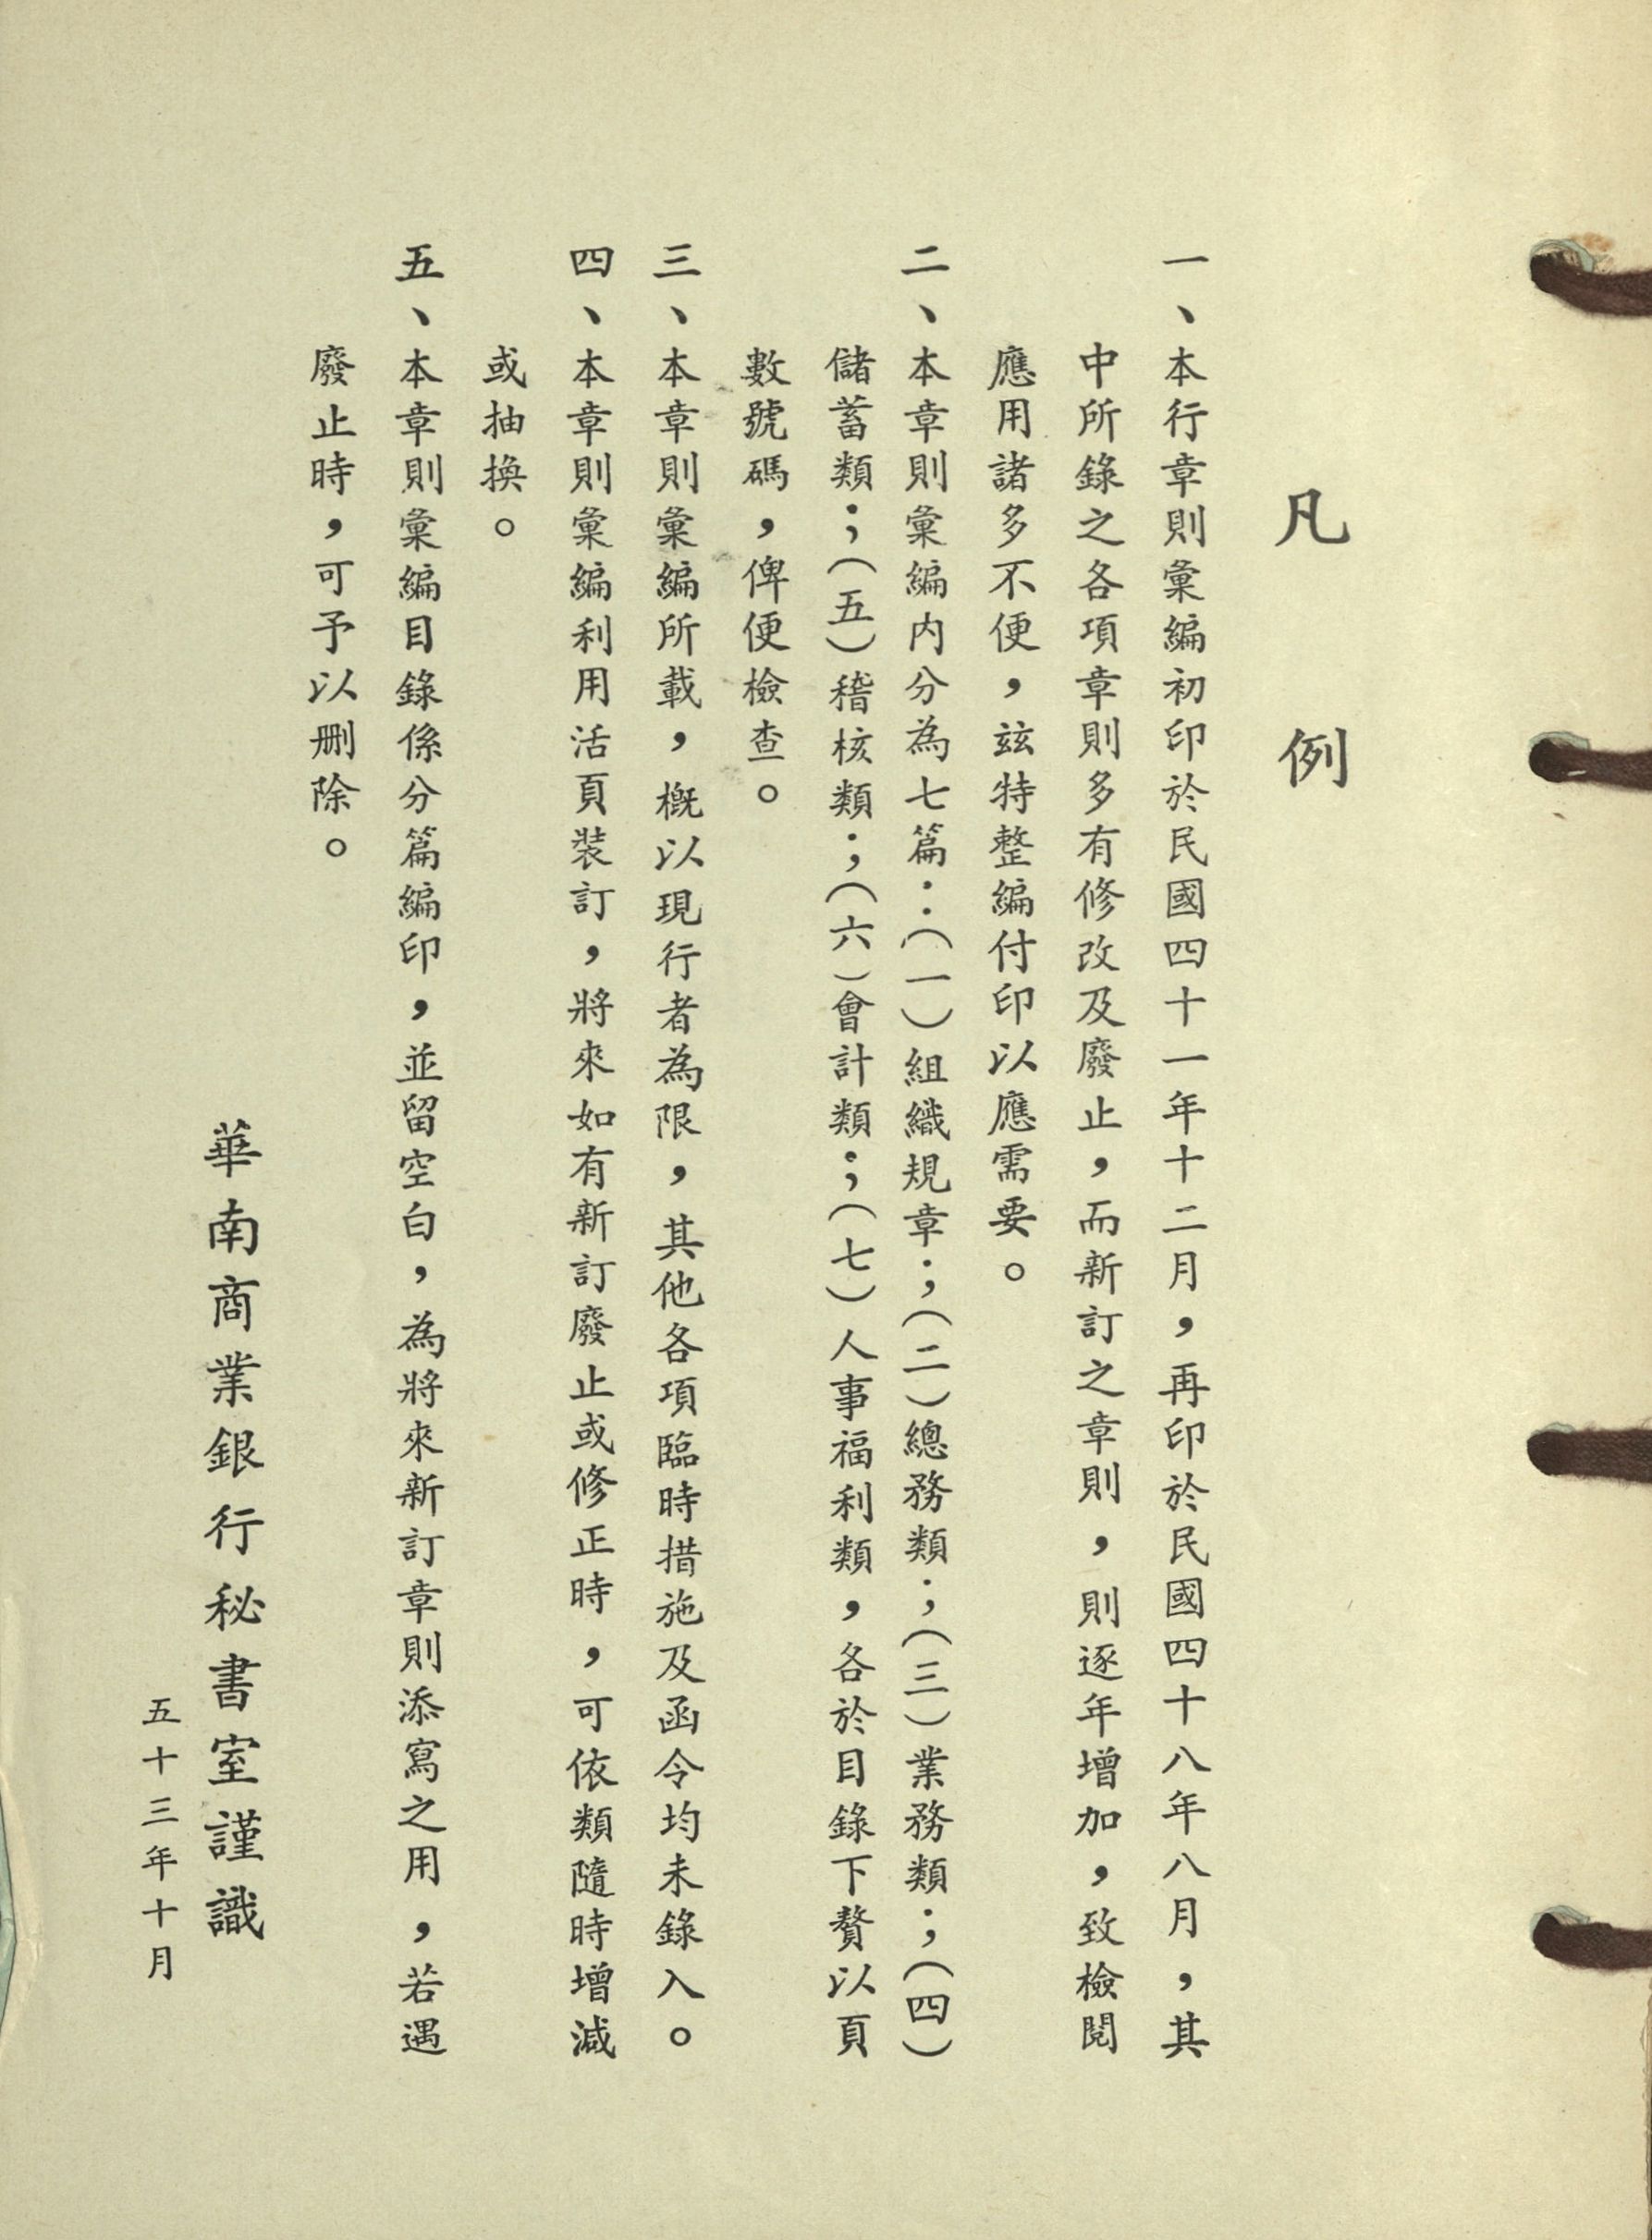 凡例
一、本行章則彙編初印於民國四十一年十二月，再印於民國四十八年八月，其
中所錄之各項章則多有修改及廢止，而新訂之章則，則逐年增加，致檢閱
應用諸多不便，茲特整編付印以應需要。
二、本章則彙編内分為七篇：（一）組織規章；（二）總務類；（三）業務類；（四）
儲蓄類；（五）稽核類；（六）會計類；（七）人事福利類，各於目錄下贅以頁
數號碼，俾便檢查。
三、本章則彙編所載，概以現行者為限，其他各項臨時措施及函令均未錄入。
四、本章則彙編利用活頁裝訂，將來如有新訂廢止或修正時，可依類隨時增減
或抽換。
五、本章則彙編目錄係分篇編印，並留空白，為將來新訂章則添寫之用，若遇
廢止時，可予以刪除。
華南商業銀行秘書室謹識
五十三年十月